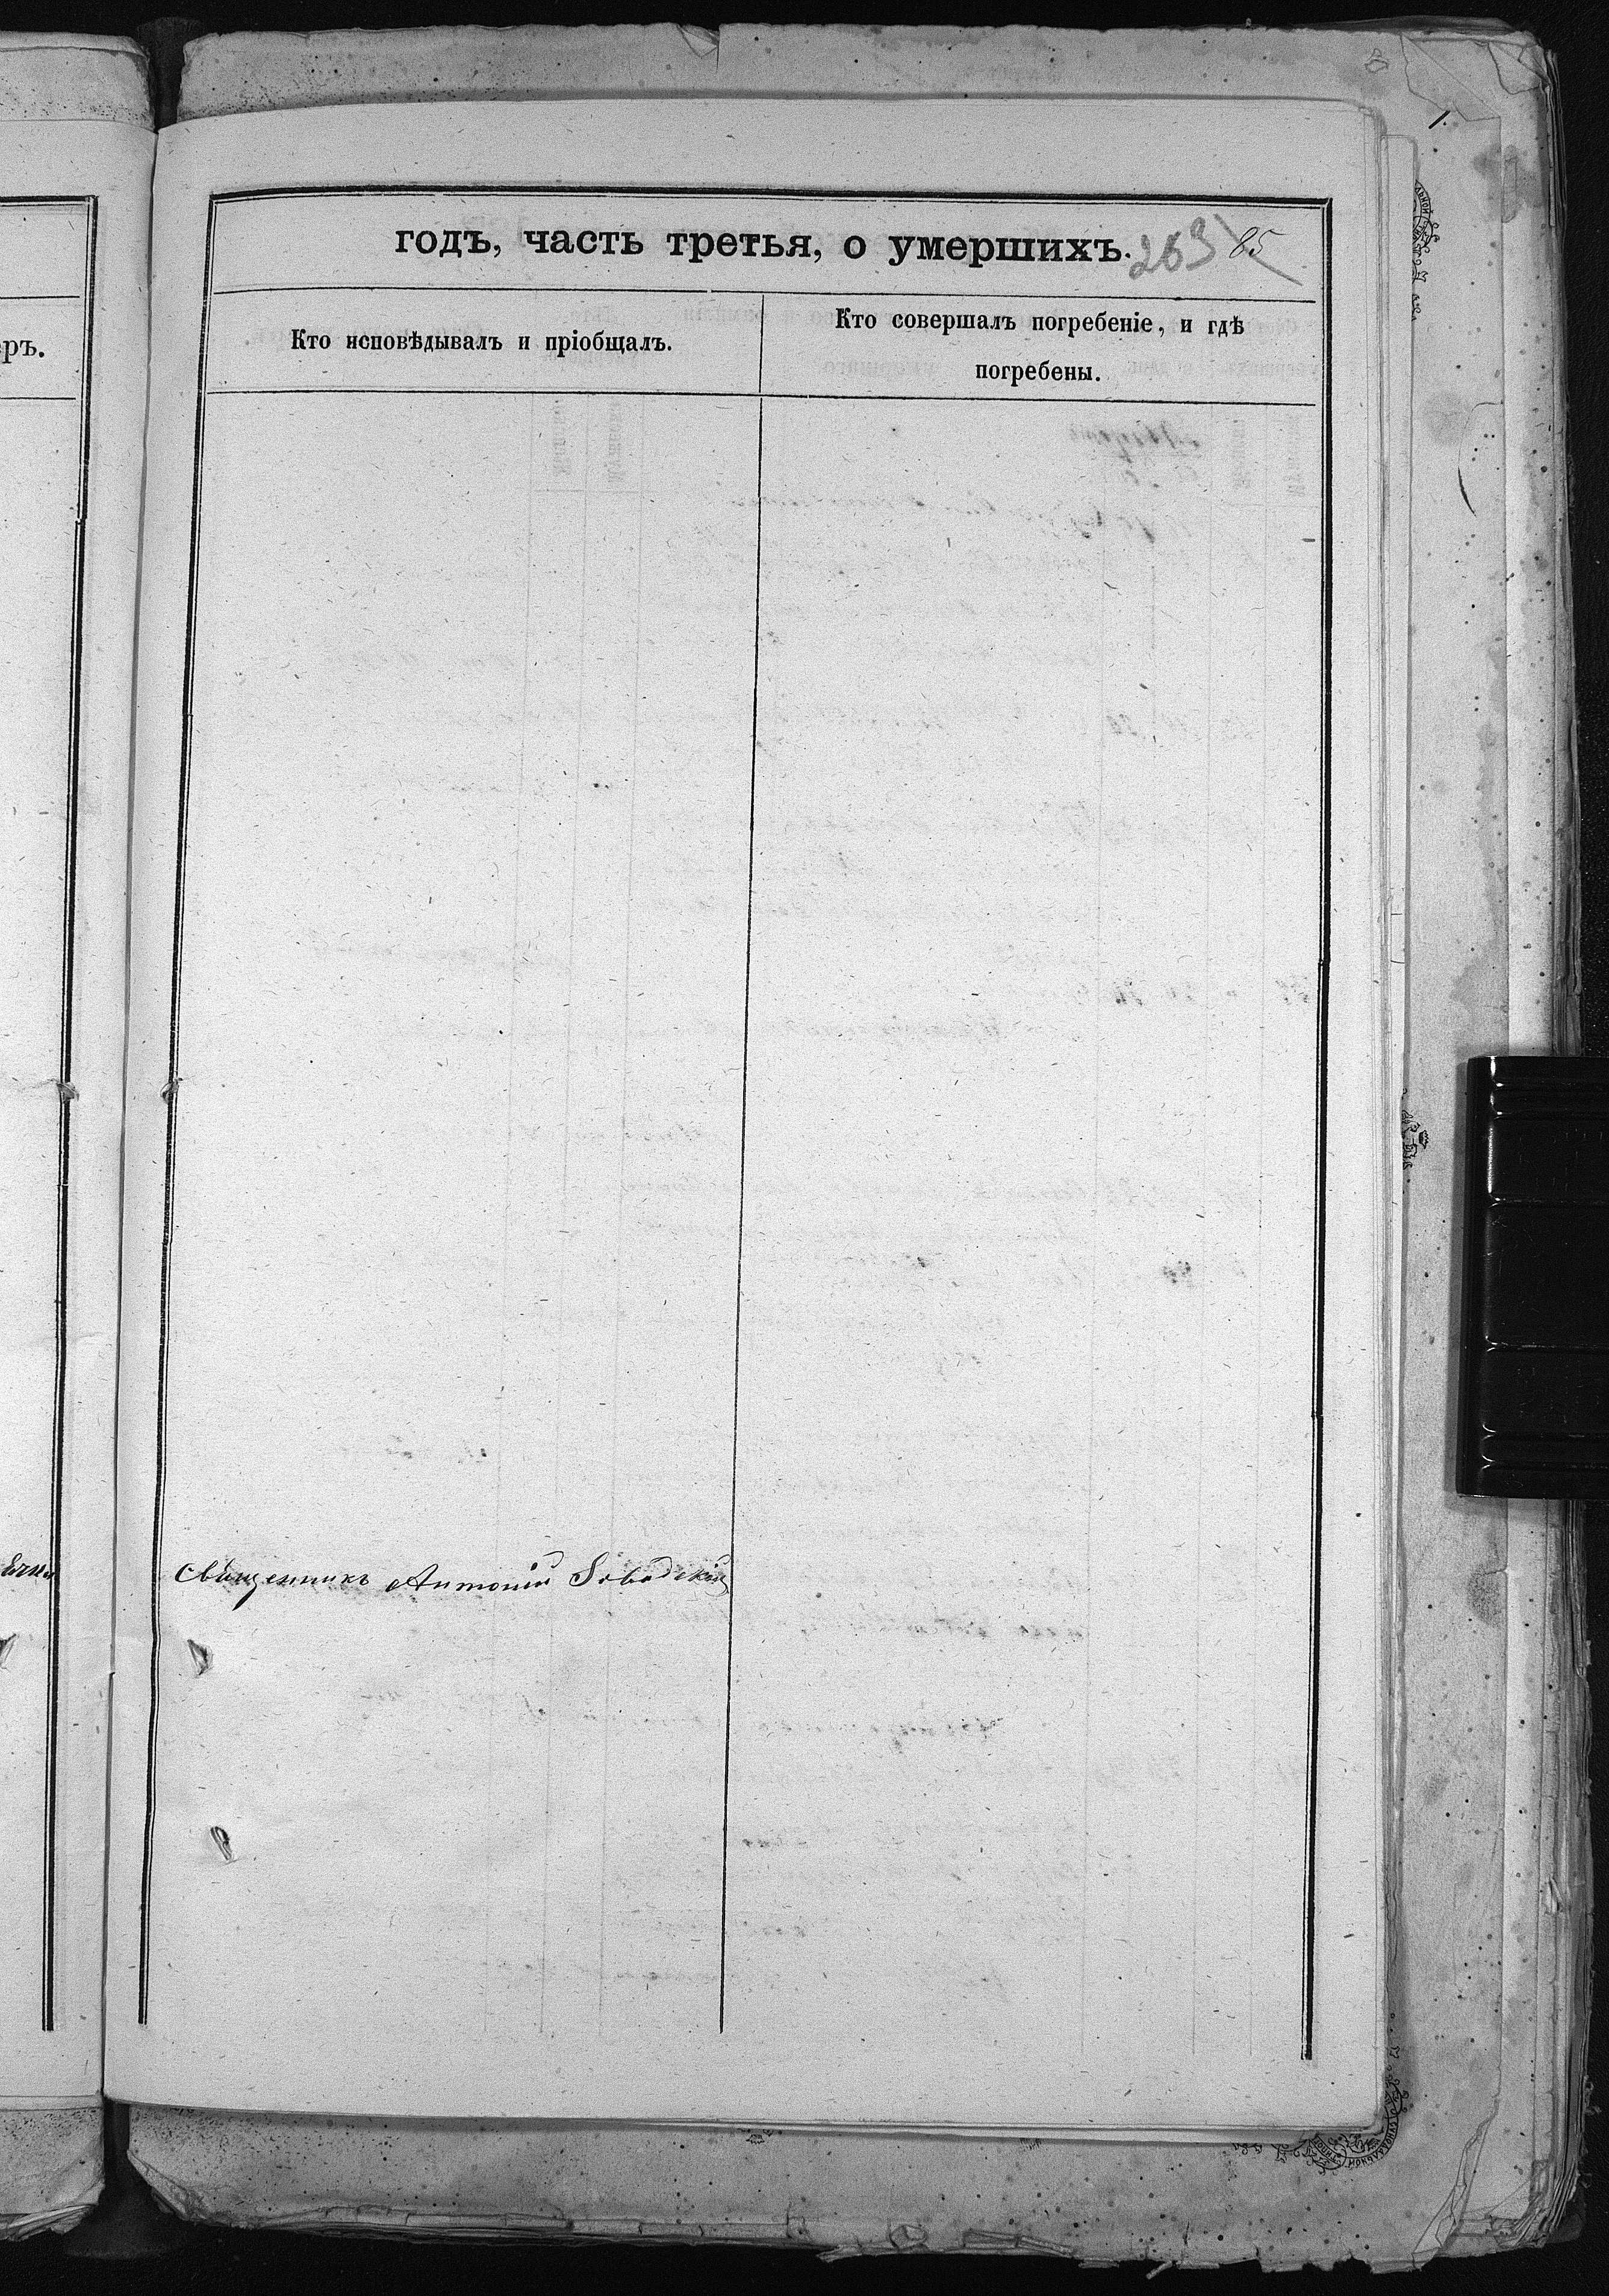 годъ, часть третья, о умершихъ.
263 85
Кто исповѣдывалъ и пріобщалъ.
Кто совершалъ погребеніе, и гдѣ
погребены.
еръ.
1.
Священникъ Антоній